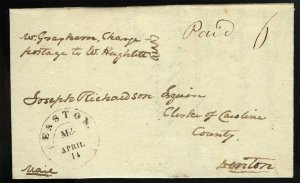 Paid 6
W. Grayham, Charge
postage to W Hughlett
Joseph Richardson Esquire
Clerke of Caroline
County
EASTON
Md.
APRIL
14
Denton
Mail